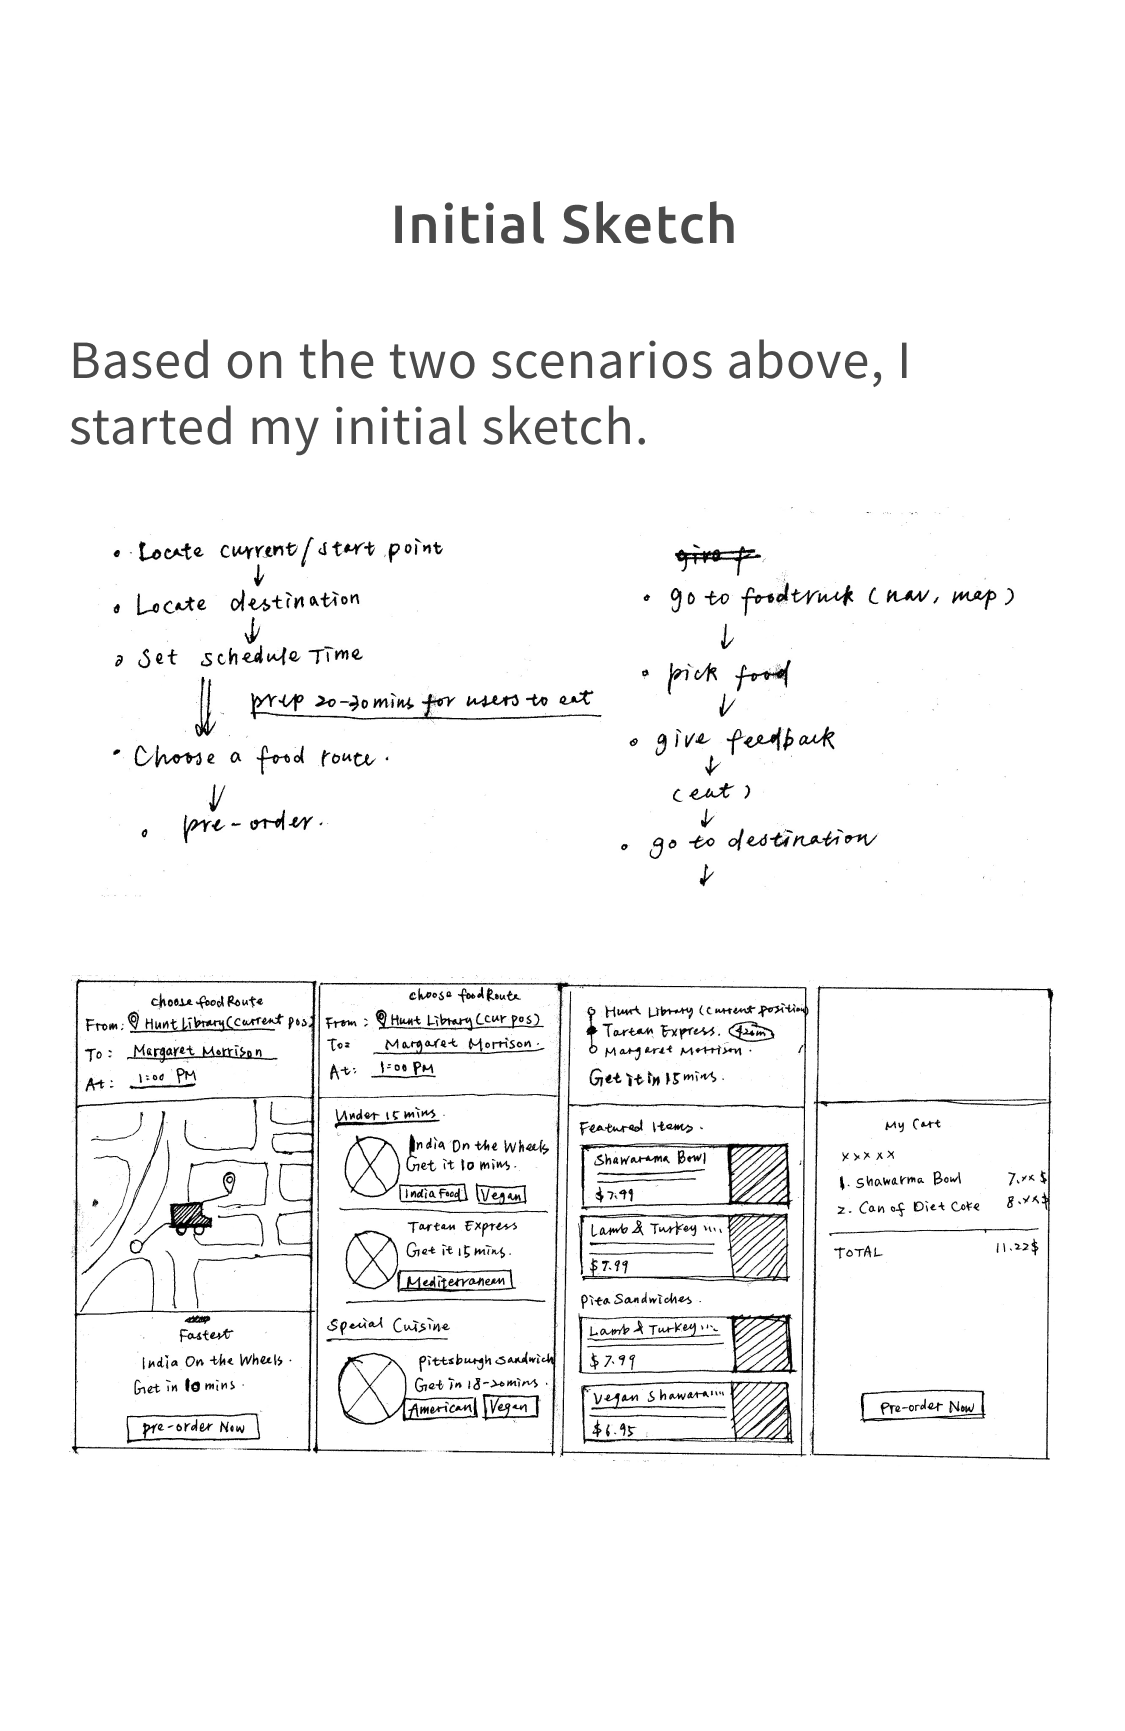 Initial Sketch
Based on the two scenarios above, I
started my initial sketch.
Locate current/start point
Locate destination
Set schedule Time
prep 20-30mins for users to eat
Choose a food route.
pre-order.
go to foodtruck (nav, map)
pick food
give feedback
(eat)
go to destination
choose food Route
From: Hunt Library (Current pos)
To: Margaret Morrison
At: 1:00 PM
Fastest
India On the Wheels.
Get in 10 mins.
pre-order Now
choose food Route
From: Hunt Library (cur pos)
To: Margaret Morrison.
At: 1:00 PM
Under 15 mins.
India On the Wheels
Get it 10 mins.
India Food Vegan
Tartan Express
Get it 15 mins.
Mediterranean
Special Cuisine
Pittsburgh Sandwich
Get in 18-20mins.
American Vegan
Hunt Library (Current position)
Tartan Express.
Margaret Morrison.
Get it in 15 mins.
Featured Items.
Shawarama Bowl
$7.99
Lamb & Turkey ....
$7.99
Pita Sandwiches.
Lamb & Turkey ...
$7.99
Vegan Shawara....
$6.95
My Cart
xxxxx
1. Shawarma Bowl 7.xx $
2. Can of Diet Coke 8.xx$
TOTAL 11.22$
Pre-order Now